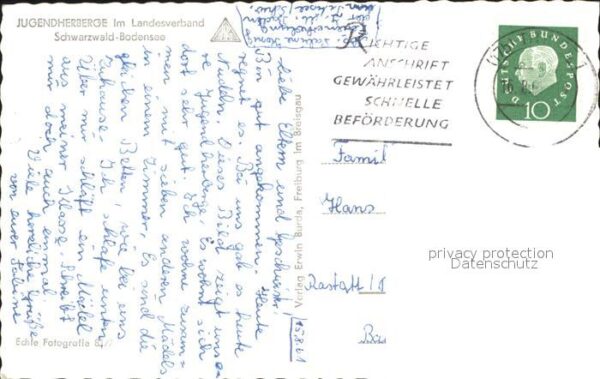 JUGENDHERBERGE im Landesverband
Schwarzwald-Bodensee
RICHTIGE
ANSCHRIFT
GEWÄHRLEISTET
SCHNELLE
BEFÖRDERUNG
DEUTSCHE BUNDESPOST
10
Liebe Eltern und Geschwister.
Bin gut angekommen. Heute
regnet es. Bei uns gab es heute
Nudeln. Dieses Bild zeigt unse
re Jugendherberge. Es wohnt sich
dort sehr gut. Ich wohne zusam-
men mit sieben anderen Mädels
in einem Zimmer. Es sind die
gleichen Betten, wie bei uns
zuhause. Ich schlafe unten
Über mir schläft ein Mädel
aus meiner Klasse. Schreibt
mir doch auch einmal
Viele herzliche Grüße
von eurer
15.8.61
Verlag Erwin Burda, Freiburg im Breisgau
Famil
Hans
Rastatt
privacy protection
Datenschutz
Echte Fotografie